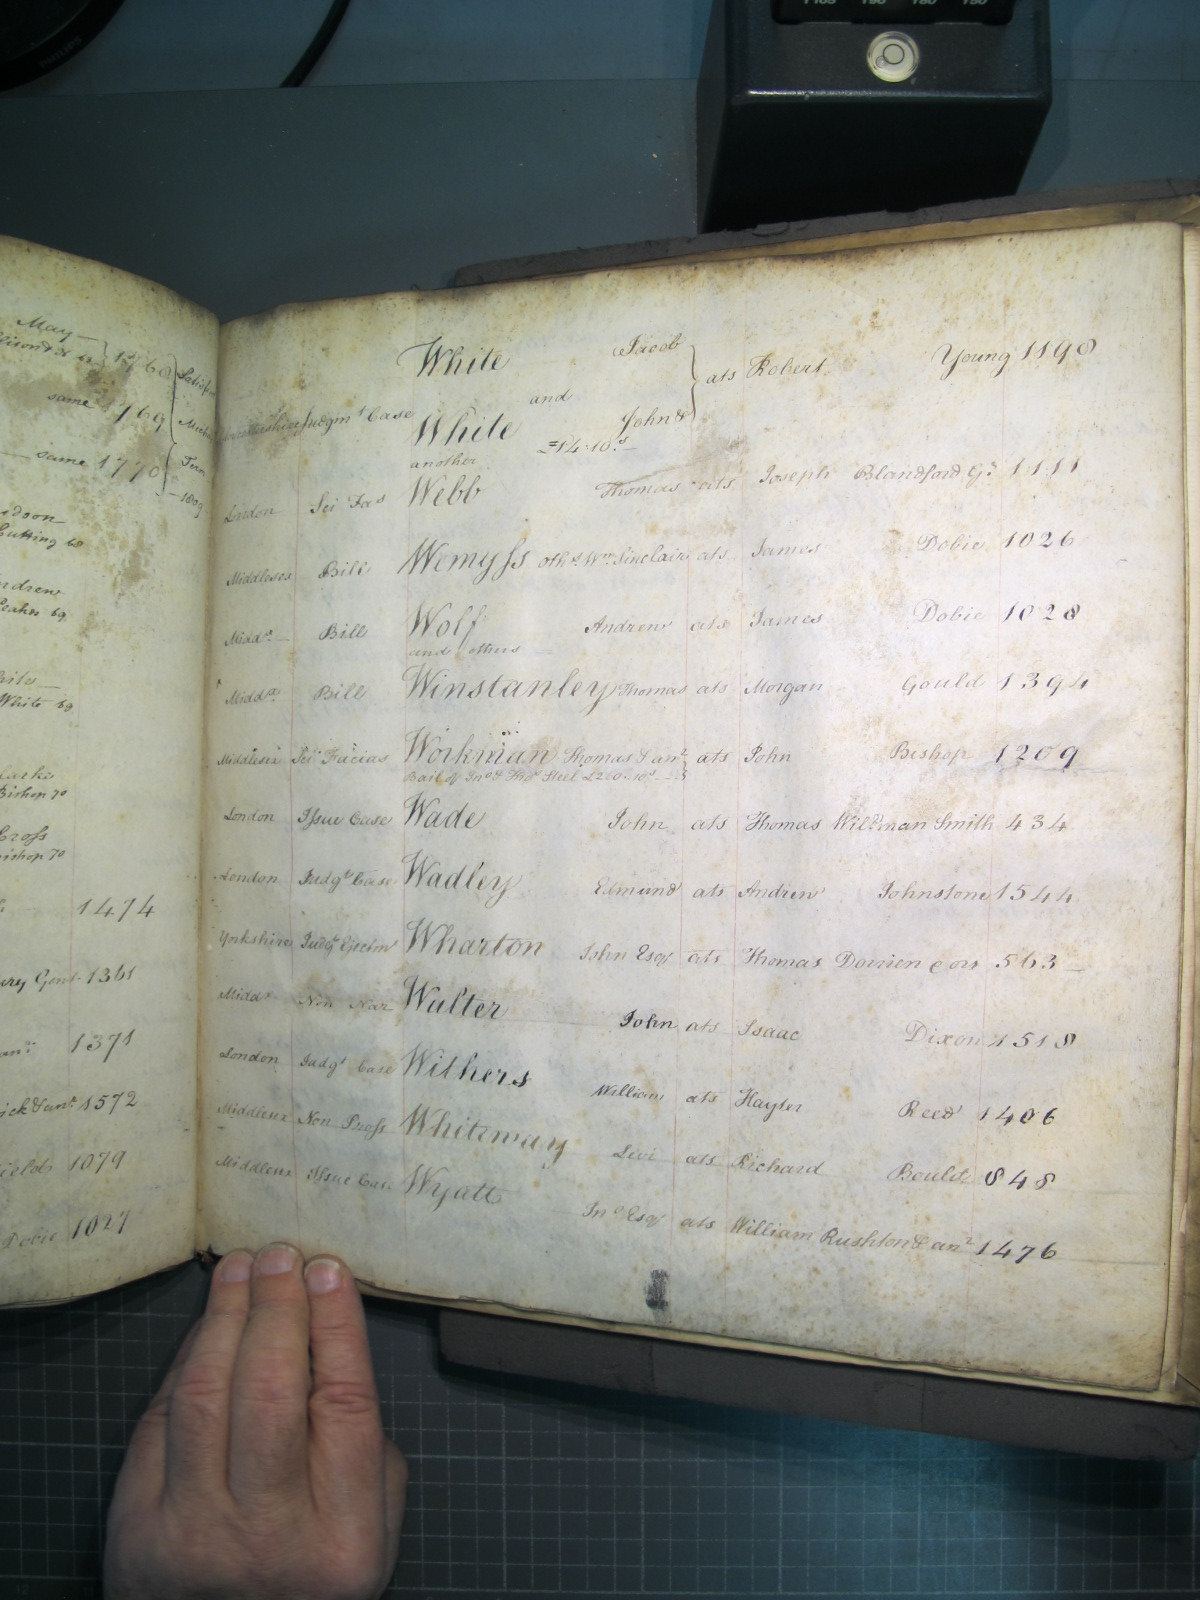 PHILIPS
May
1768
same 769
same 1770
Satisf
Mich
Term
1809
Cutting 68
ndrew
Peakes 69
White 69
Bishop 70
Cross
Bishop 70
1474
1361
1371
1572
ields 1079
Dobie 1027
White Jacob
and ats Robert Young 1190
Judgmt Case White John &
another £14.10.s
London Sci Fas Webb Thomas ats Joseph Blandford Gt 1111
Middlesex Bill Wemyss othse Wm Sinclair ats James Dobie 1026
Middx Bill Wolf Andrew ats James Dobie 1028
and others
Middx Bill Winstanley Thomas ats Morgan Gould 1394
Middlesex Sci Facias Workman Thomas & anr ats John Bishop 1209
Bail of
London Issue Case Wade John ats Thomas Willman Smith 434
London Judgt Case Wadley Edmund ats Andrew Johnstone 1544
Yorkshire Judgt Wharton John Esqr ats Thomas 563
Middx Non Walter John ats Isaac Dixon 1518
London Judgt Case Withers William ats Hayter Reed 1406
Middlesex Non Pross Whiteway Levi ats Richard Boult 848
Middlesex Issue Case Wyatt Jno Esqr ats William Rushton & anr 1476